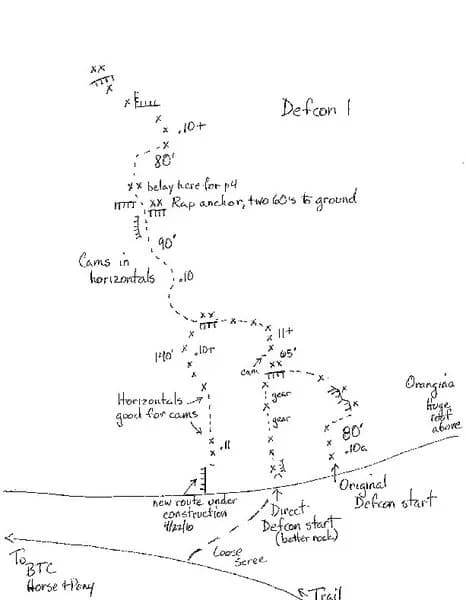 Defcon 1
.10+
80'
belay here for p4
Rap anchor, two 60's to ground
90'
Cams in
horizontals
.10
11+
140'
.10+
65'
cam
Orangina
Huge
roof
above
gear
Horizontals
good for cams
gear
80'
.11
.10a
Original
Defcon start
new route under
construction
4/22/10
Direct
Defcon start
(better rock)
Loose
Scree
To
BTC
Horse + Pony
Trail